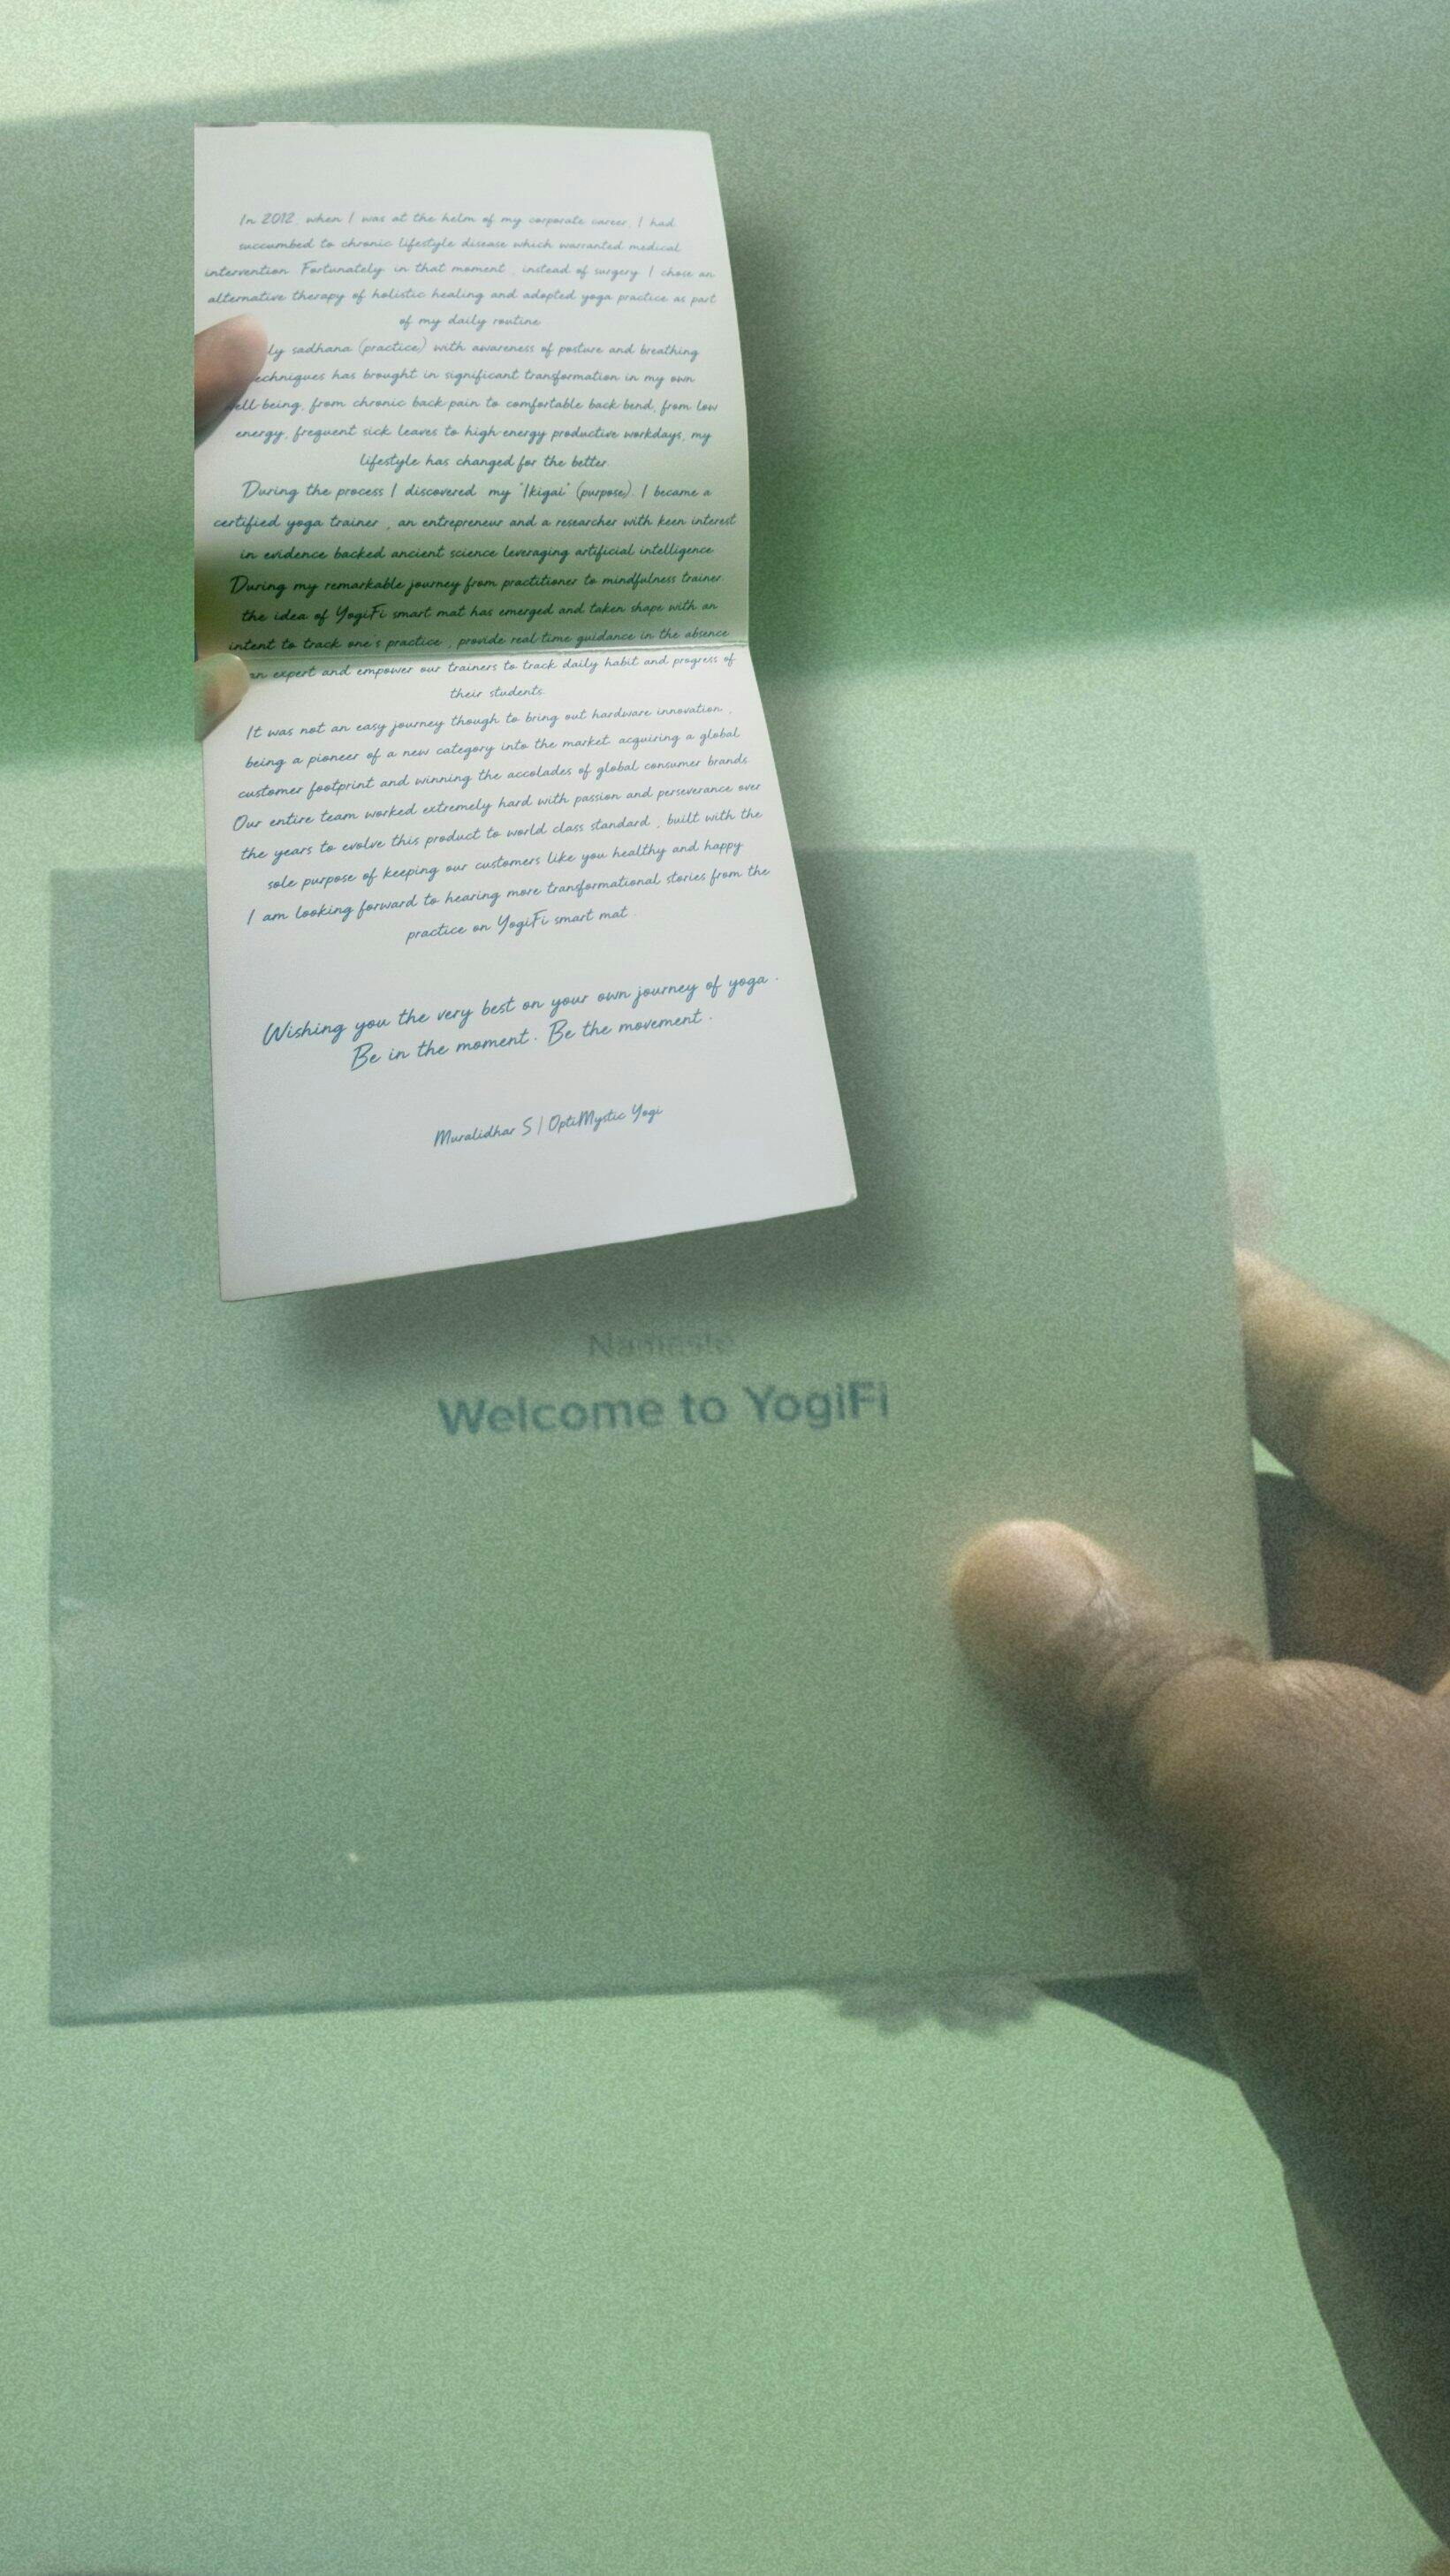 In 2012, when I was at the helm of my corporate career, I had
succumbed to chronic lifestyle disease which warranted medical
intervention. Fortunately in that moment, instead of surgery I chose an
alternative therapy of holistic healing and adopted yoga practice as part
of my daily routine
sadhana (practice) with awareness of posture and breathing
has brought in significant transformation in my own
being, from chronic back pain to comfortable back bend, from low
energy, frequent sick leaves to high-energy productive workdays, my
lifestyle has changed for the better.
During the process I discovered my "Ikigai" (purpose). I became a
certified yoga trainer , an entrepreneur and a researcher with keen interest
in evidence backed ancient science leveraging artificial intelligence
During my remarkable journey from practitioner to mindfulness trainer.
the idea of YogiFi smart mat has emerged and taken shape with an
intent to track one's practice , provide real-time guidance in the absence
an expert and empower our trainers to track daily habit and progress of
their students.
It was not an easy journey though to bring out hardware innovation ,
being a pioneer of a new category into the market acquiring a global
customer footprint and winning the accolades of global consumer brands
Our entire team worked extremely hard with passion and perseverance over
the years to evolve this product to world class standard , built with the
sole purpose of keeping our customers like you healthy and happy
I am looking forward to hearing more transformational stories from the
practice on YogiFi smart mat .
Wishing you the very best on your own journey of yoga .
Be in the moment . Be the movement .
Muralidhar S | OptiMystic Yogi
Namaste
Welcome to YogiFi